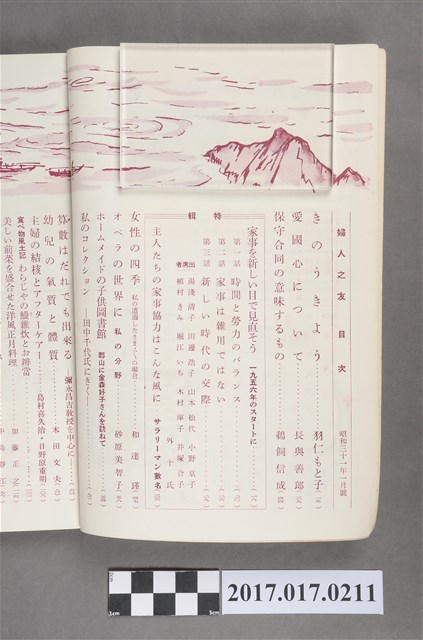 婦人之友 目次
昭和三十一年一月號
きのうきょう
羽仁もと子
愛國心について
長與善郎
保守合同の意味するもの
鵜飼信成
特輯
家事を新しい目で見直そう 一九五六年のスタートに
第一話 時間と勞力のバランス
第二話 家事は雜用ではない
第三話 新しい時代の交際
出席者
湯淺清子 田邊浩子 山本松代 小野京子
植村きみ 堀江いち 木村庫子 井塚合子
外十氏
主人たちの家事協力はこんな風に サラリーマン數名
女性の四季 私の遭遇したさまざまの場合
和達瑾
オペラの世界に 私の分野
砂原美智子
ホームメイドの子供圖書館 郡山に金森好子さんを訪ねて
私のコレクション ―田中千代氏にきく―
算數はだれでも出來る ―彌永昌吉教授を中心に―
幼兒の氣質と體質
木田文夫
主婦の結核とアフターケアー
島村喜久治・日野原重明
食べ物風土記 わらじやの鰻雜炊とお辨當
加藤正之
美しい前菜を盛合せた洋風正月料理
2cm
3cm
5cm
2017.017.0211